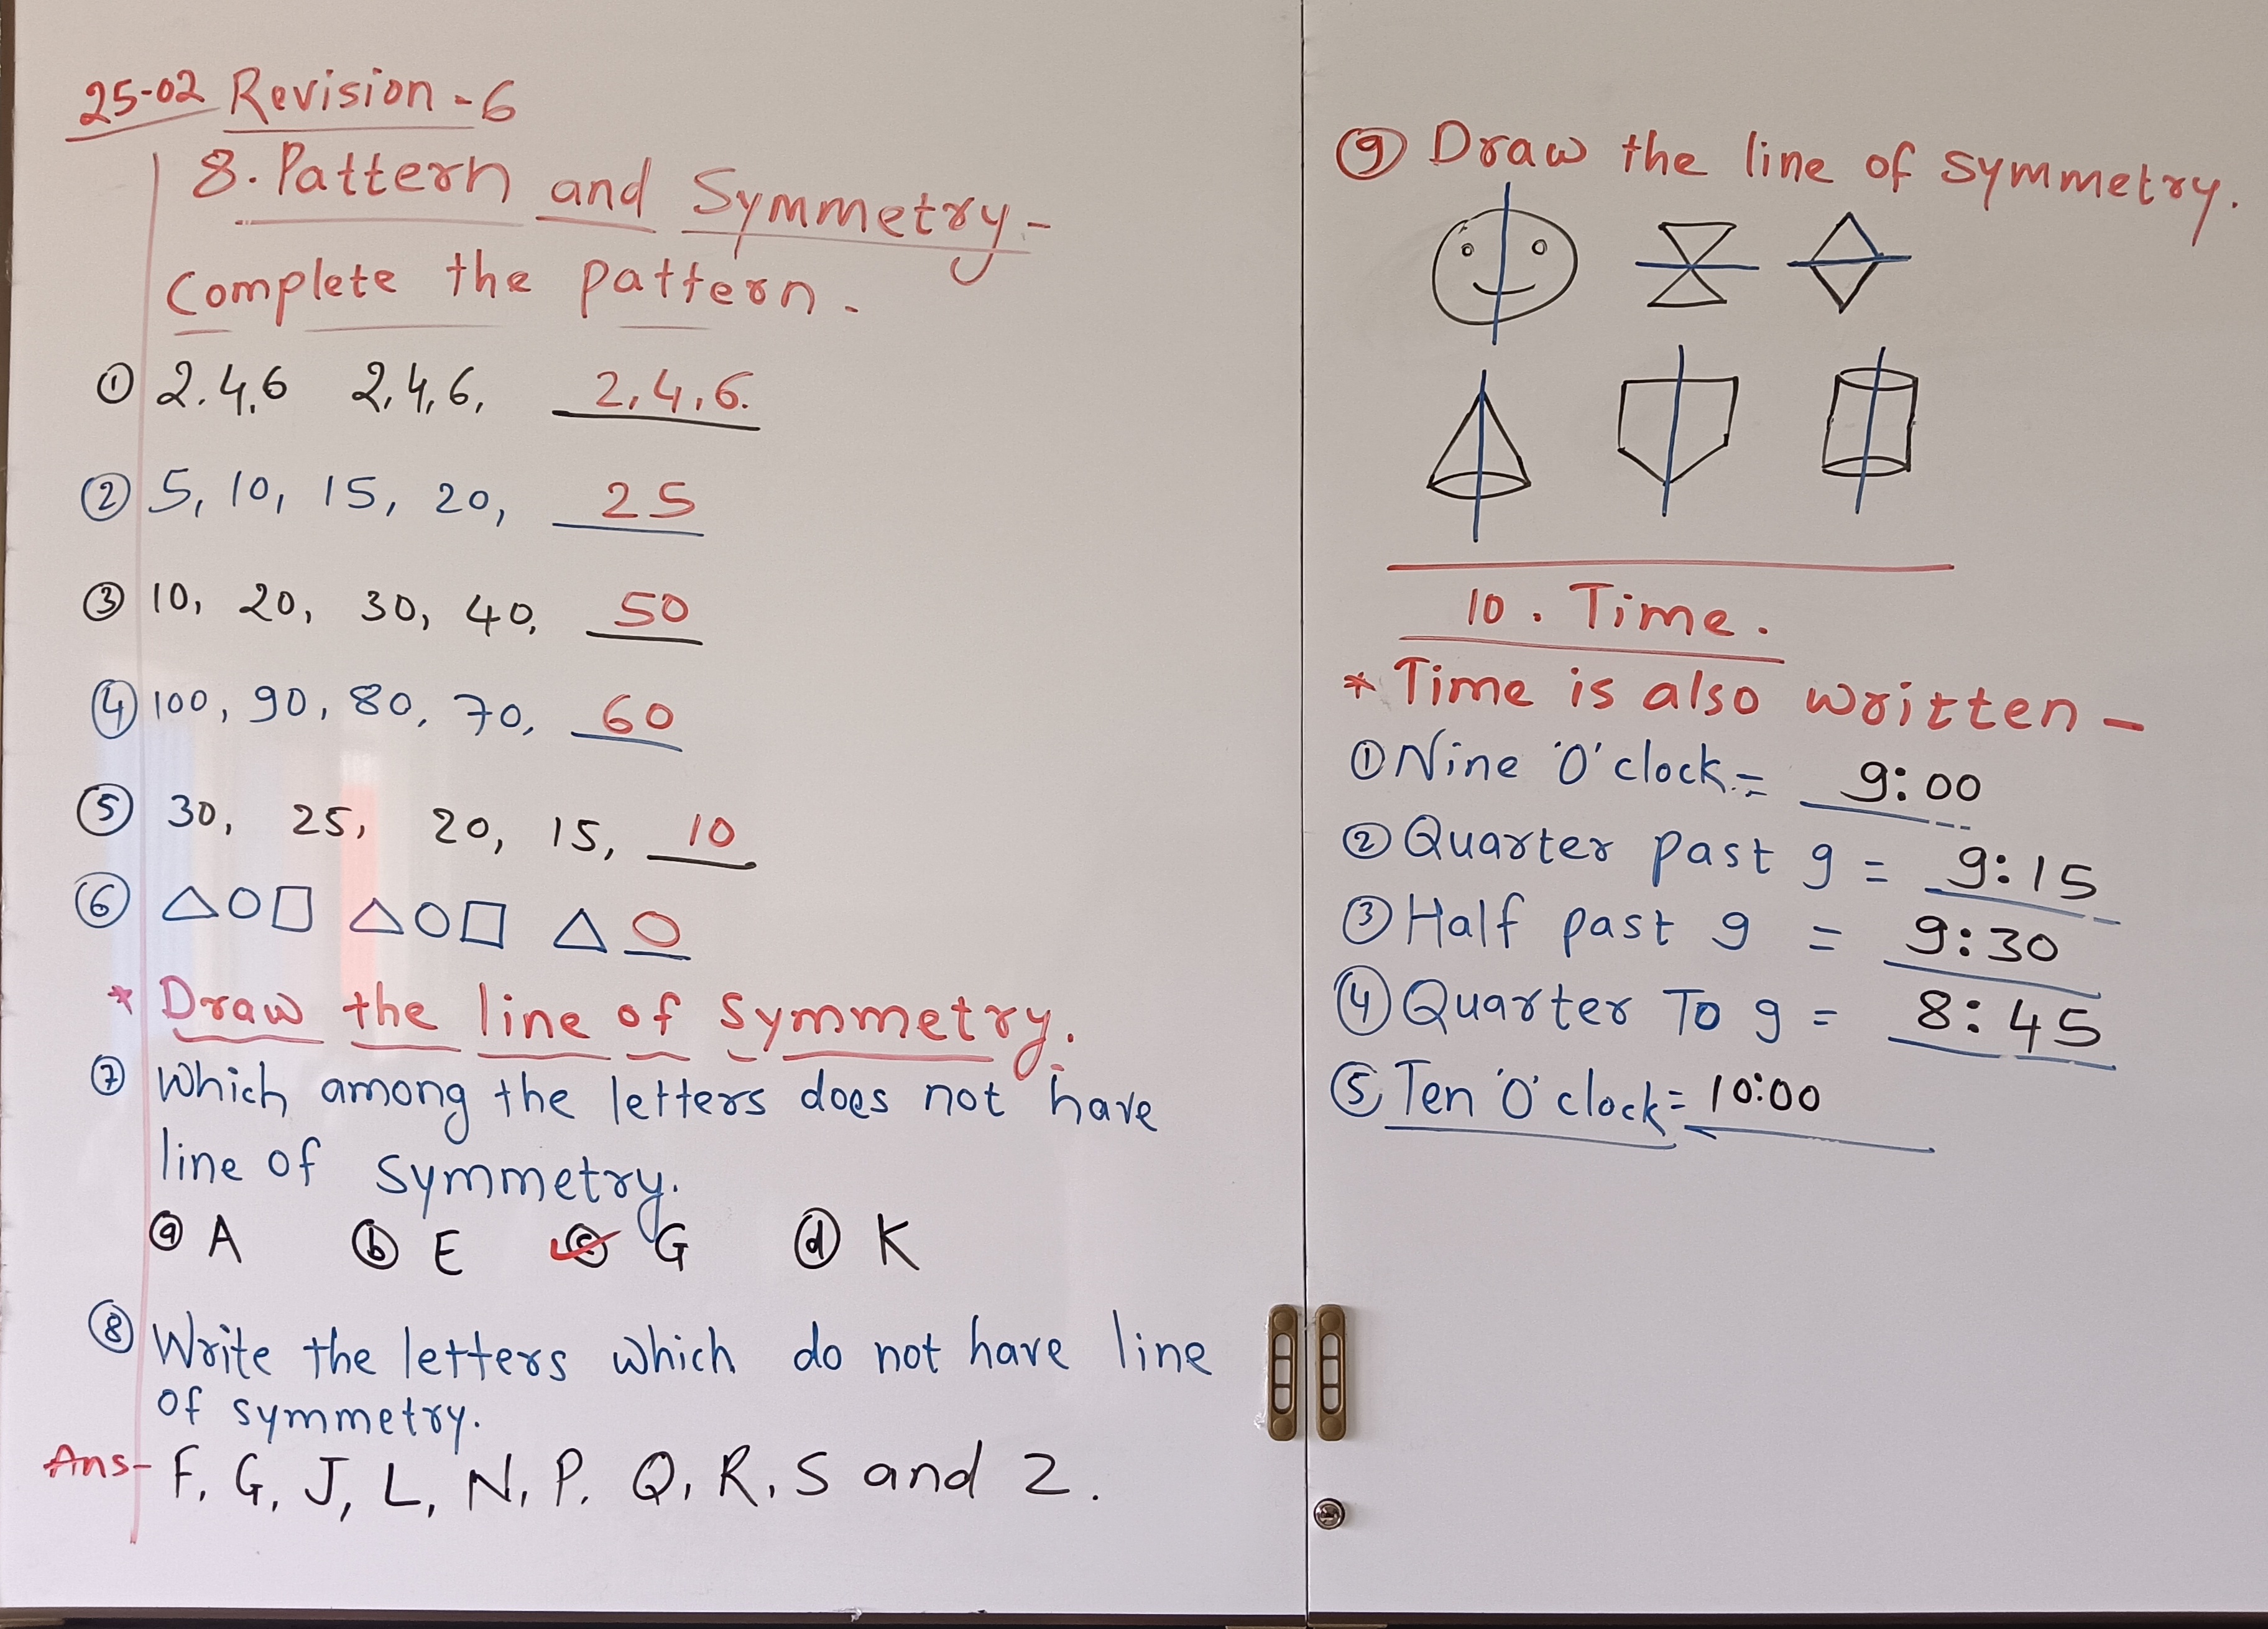 25-02 Revision-6
8. Pattern and Symmetry-
Complete the pattern.
① 2,4,6 2,4,6, 2,4,6.
② 5, 10, 15, 20, 25
③ 10, 20, 30, 40, 50
④ 100, 90, 80, 70, 60
⑤ 30, 25, 20, 15, 10
⑥ △○□ △○□ △ ○
* Draw the line of symmetry.
⑦ Which among the letters does not have
line of symmetry.
ⓐ A ⓑ E ✓ⓒ G ⓓ K
⑧ Write the letters which do not have line
of symmetry.
Ans- F, G, J, L, N, P, Q, R, S and Z.
⑨ Draw the line of symmetry.
10. Time.
* Time is also written -
① Nine 'O' clock = 9:00
② Quarter past 9 = 9:15
③ Half past 9 = 9:30
④ Quarter To 9 = 8:45
⑤ Ten 'O' clock = 10:00